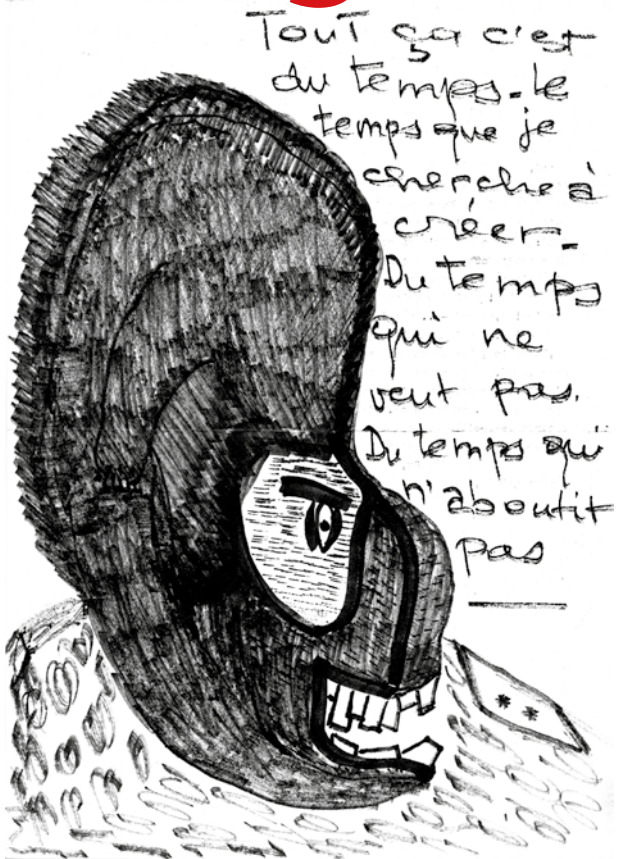 Tout ça c'est
du temps. le
temps que je
cherche à
créer.
Du temps
qui ne
veut pas.
Du temps qui
n'aboutit
pas